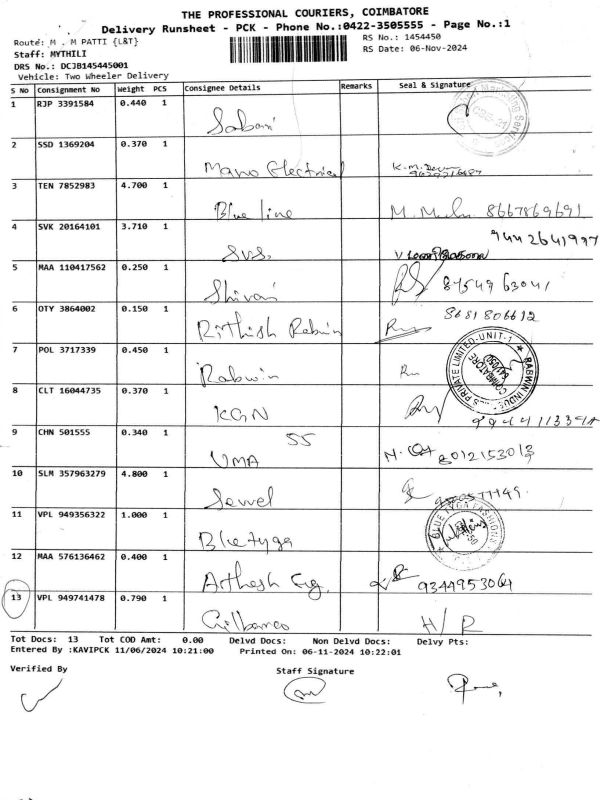 THE PROFESSIONAL COURIERS, COIMBATORE
Delivery Runsheet - PCK - Phone No.:0422-3505555 - Page No.:1
Route: M . M PATTI {L&T}
RS No.: 1454450
Staff: MYTHILI
RS Date: 06-Nov-2024
DRS No.: DCJB145445001
Vehicle: Two Wheeler Delivery
S No Consignment No Weight PCS Consignee Details Remarks Seal & Signature
1 RJP 3391584 0.440 1
Sabari
2 SSD 1369204 0.370 1
Mano Electrical
3 TEN 7852983 4.700 1
Blue line 8667869691
4 SVK 20164101 3.710 1
9442641997
SVS.
5 MAA 110417562 0.250 1
Shivani 8754963041
6 OTY 3864002 0.150 1
8681806612
Rithish Rabwin
7 POL 3717339 0.450 1
Rabwin
RABWIN INDUS PRIVATE LIMITED-UNIT-1
COIMBATORE
8 CLT 16044735 0.370 1
KGN
9 CHN 501555 0.340 1
55
UMA 8012153013
10 SLM 357963279 4.800 1
Sewel
11 VPL 949356322 1.000 1
Bluetyga
12 MAA 576136462 0.400 1
9344953064
13 VPL 949741478 0.790 1
Gilbarco H/R
Tot Docs: 13 Tot COD Amt: 0.00 Delvd Docs: Non Delvd Docs: Delvy Pts:
Entered By :KAVIPCK 11/06/2024 10:21:00 Printed On: 06-11-2024 10:22:01
Verified By Staff Signature